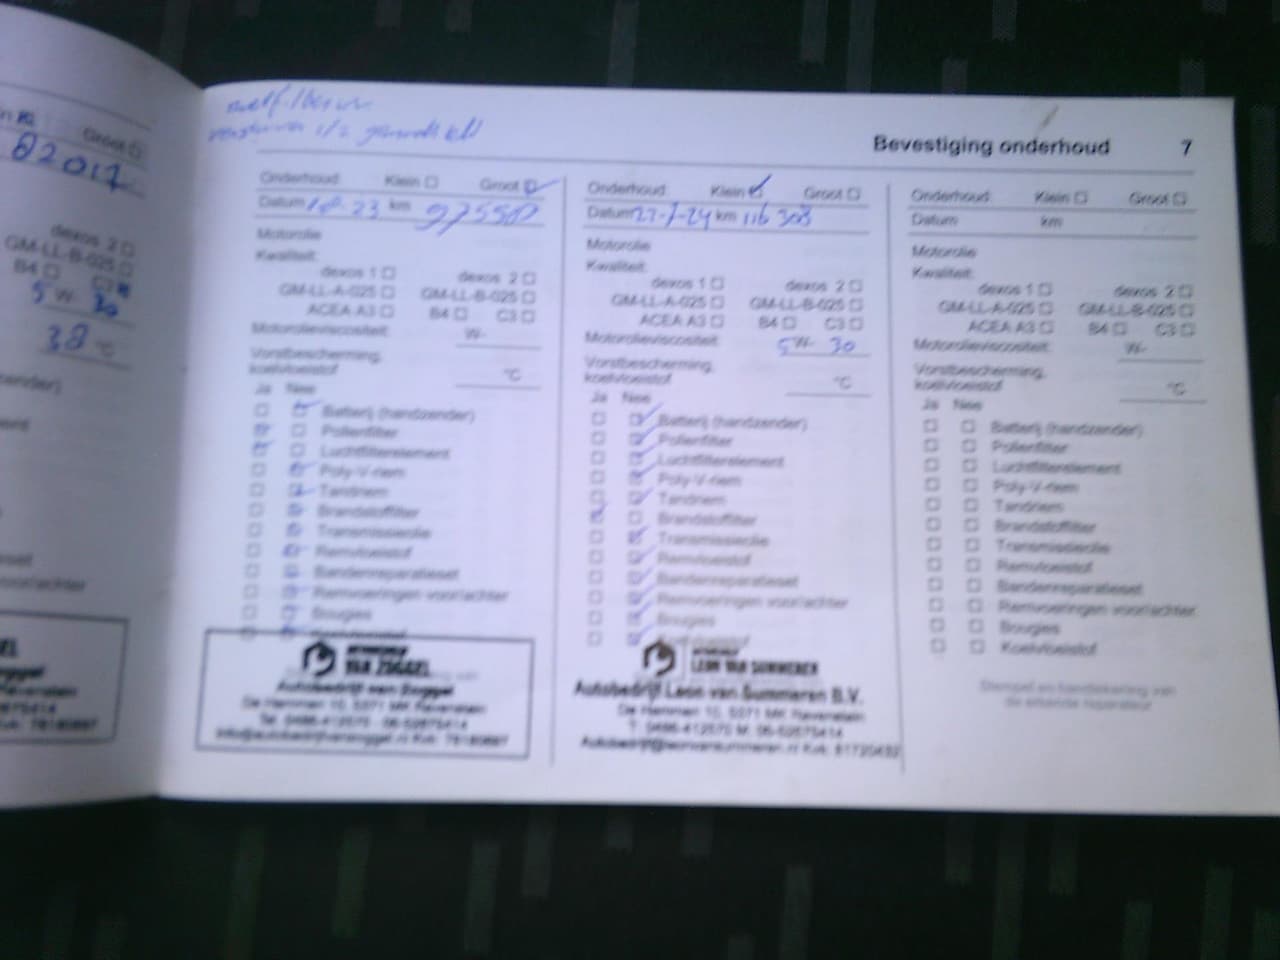 Groot
82017
dexos 2
GM-LL-B-025
B4 C3
5 W- 30
38 °C
Bevestiging onderhoud 7
Onderhoud: Klein Groot
Datum km 97550
Motorolie
Kwaliteit:
dexos 1 dexos 2
GM-LL-A-025 GM-LL-B-025
ACEA A3 B4 C3
Motorolieviscositeit: W-
Vorstbescherming,
koelvloeistof °C
Ja Nee
Batterij (handzender)
Pollenfilter
Luchtfilterelement
Poly-V-riem
Tandriem
Brandstoffilter
Transmissieolie
Remvloeistof
Bandenreparatieset
Remvoeringen voor/achter
Bougies
VAN ZOGGEL
Autobedrijf van Zoggel
De Hammen 10, 5371 MK Ravenstein
Tel. 0486-412570 - 06-52675414
info@autobedrijfvanzoggel.nl Kvk:
Onderhoud: Klein Groot
Datum 22-7-24 km 116 303
Motorolie
Kwaliteit:
dexos 1 dexos 2
GM-LL-A-025 GM-LL-B-025
ACEA A3 B4 C3
Motorolieviscositeit: 5 W- 30
Vorstbescherming,
koelvloeistof °C
Ja Nee
Batterij (handzender)
Pollenfilter
Luchtfilterelement
Poly-V-riem
Tandriem
Brandstoffilter
Transmissieolie
Remvloeistof
Bandenreparatieset
Remvoeringen voor/achter
Bougies
Koelvloeistof
LEON VAN SUMMEREN
Autobedrijf Leon van Summeren B.V.
De Hammen 10, 5371 MK Ravenstein
T. 0486-412570 M. 06-52675414
Autobedrijf@leonvansummeren.nl Kvk:
Onderhoud: Klein Groot
Datum km
Motorolie
Kwaliteit:
dexos 1 dexos 2
GM-LL-A-025 GM-LL-B-025
ACEA A3 B4 C3
Motorolieviscositeit: W-
Vorstbescherming,
koelvloeistof °C
Ja Nee
Batterij (handzender)
Pollenfilter
Luchtfilterelement
Poly-V-riem
Tandriem
Brandstoffilter
Transmissieolie
Remvloeistof
Bandenreparatieset
Remvoeringen voor/achter
Bougies
Koelvloeistof
Stempel en handtekening van
de erkende reparateur